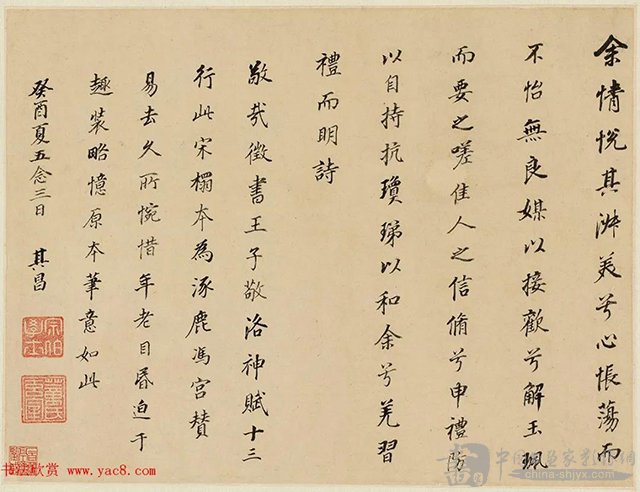 余情悅其淑美兮心悵蕩而
不怡無良媒以接歡兮解玉珮
而要之嗟佳人之信脩兮申禮防
以自持抗瓊珶以和余兮羌習
禮而明詩
敬哉徵書王子敬洛神賦十三
行此宋榻本為涿鹿馮宮贊
易去久所惋惜年老目昏迫于
趣裝略憶原本筆意如此
癸酉夏五念三日 其昌
宗伯學士
董氏玄宰
书法欣赏 www.yac8.com
www.china-shjyx.com